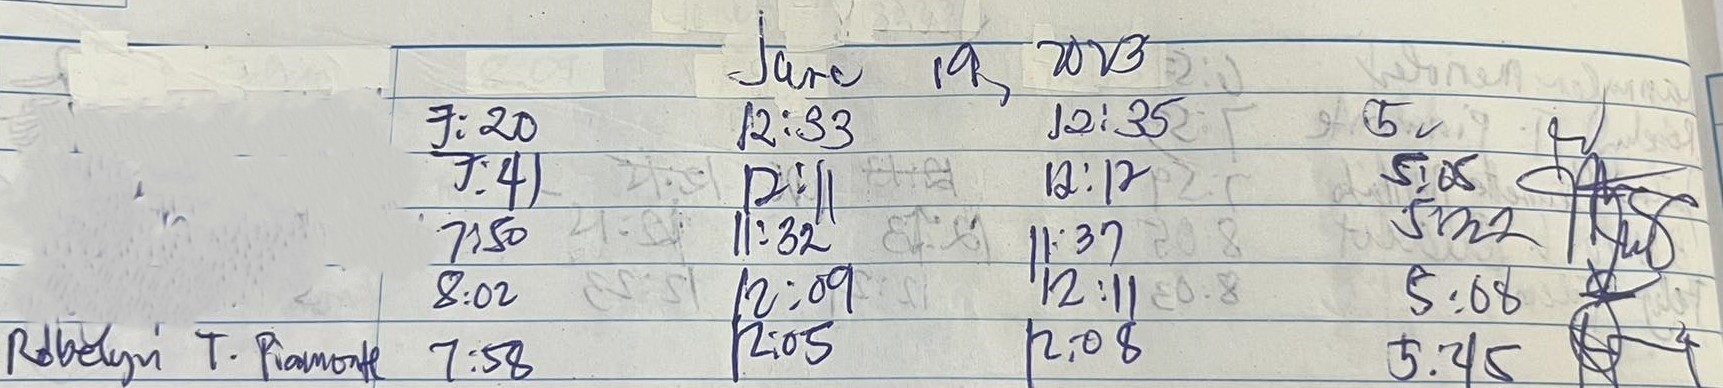 June 19, 2023
7:20 12:33 12:35 5
7:41 12:11 12:12 5:05
7:50 11:32 11:37 5:22
8:02 12:09 12:11 5:08
Robelyn T. Piamonte 7:58 12:05 12:08 5:45